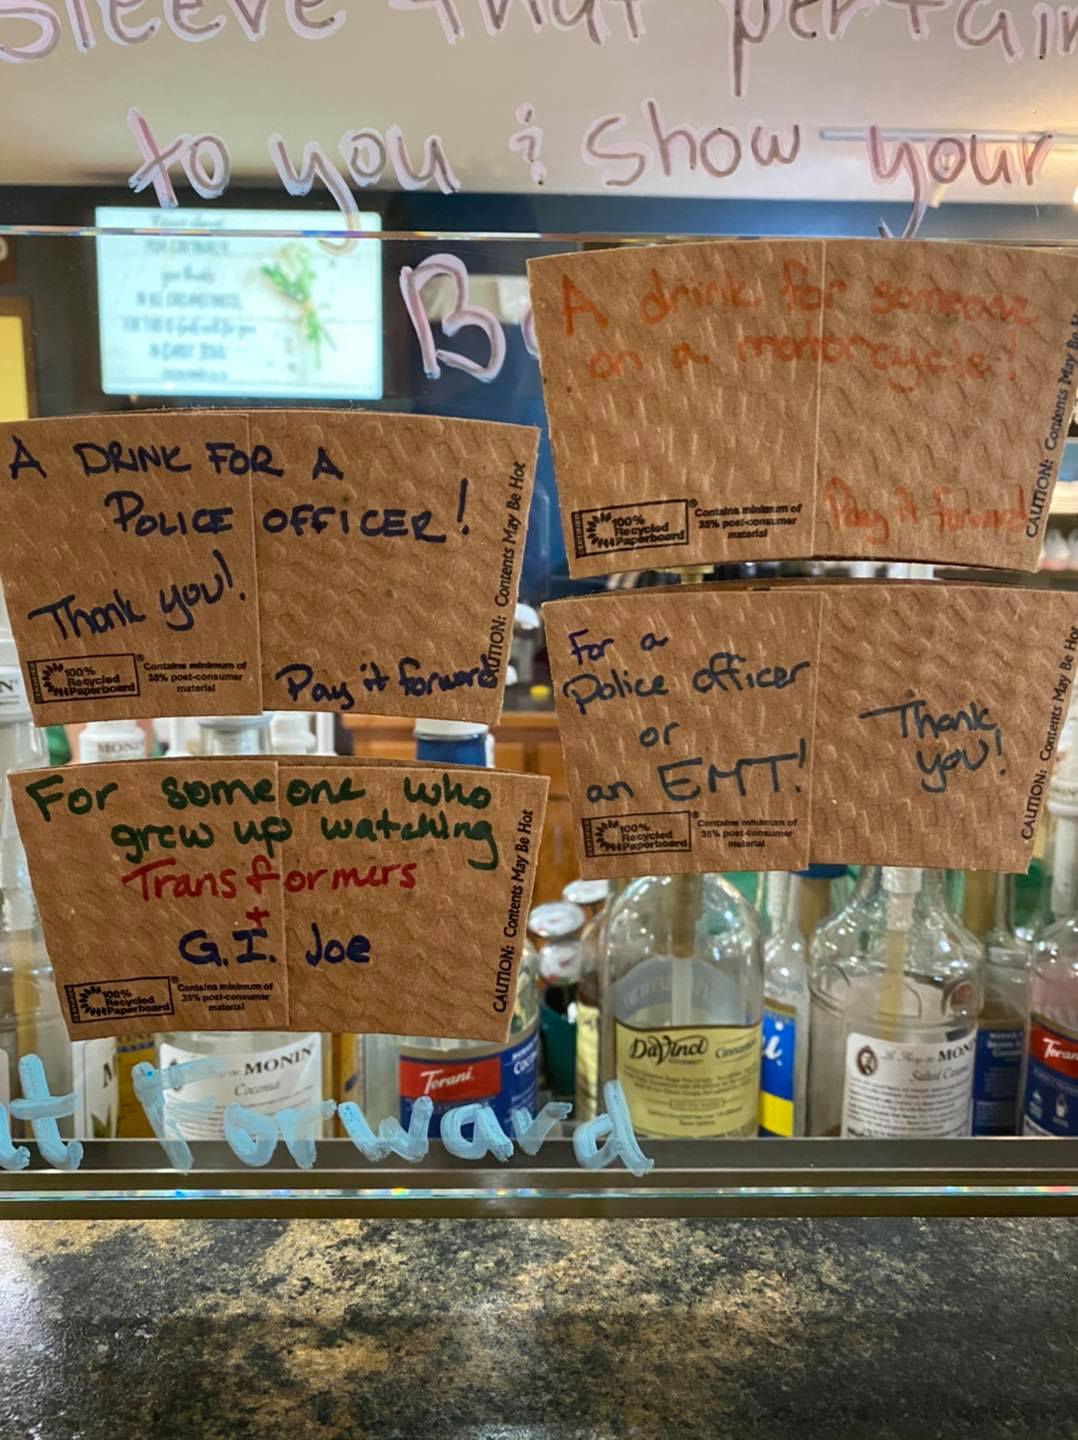 sleeve that pertain
to you & show your
Ba
A drink for someone
on a motorcycle!
Pay it forward
CAUTION: Contents May Be H
100%
Recycled
Paperboard
Contains minimum of
35% post-consumer
material
A DRINK FOR A
POLICE OFFICER!
Thank you!
Pay it forward
CAUTION: Contents May Be Hot
100%
Recycled
Paperboard
Contains minimum of
35% post-consumer
material
For a
Police officer
or
an EMT!
Thank
you!
CAUTION: Contents May Be Hot
100%
Recycled
Paperboard
Contains minimum of
35% post-consumer
material
For someone who
grew up watching
Transformers
+
G.I. Joe
CAUTION: Contents May Be Hot
100%
Recycled
Paperboard
Contains minimum of
35% post-consumer
material
MONIN
DaVinci
GOURMET
Cinnamon
MONIN
Coconut
Torani
MONIN
Salted Caramel
Torani
it Forward